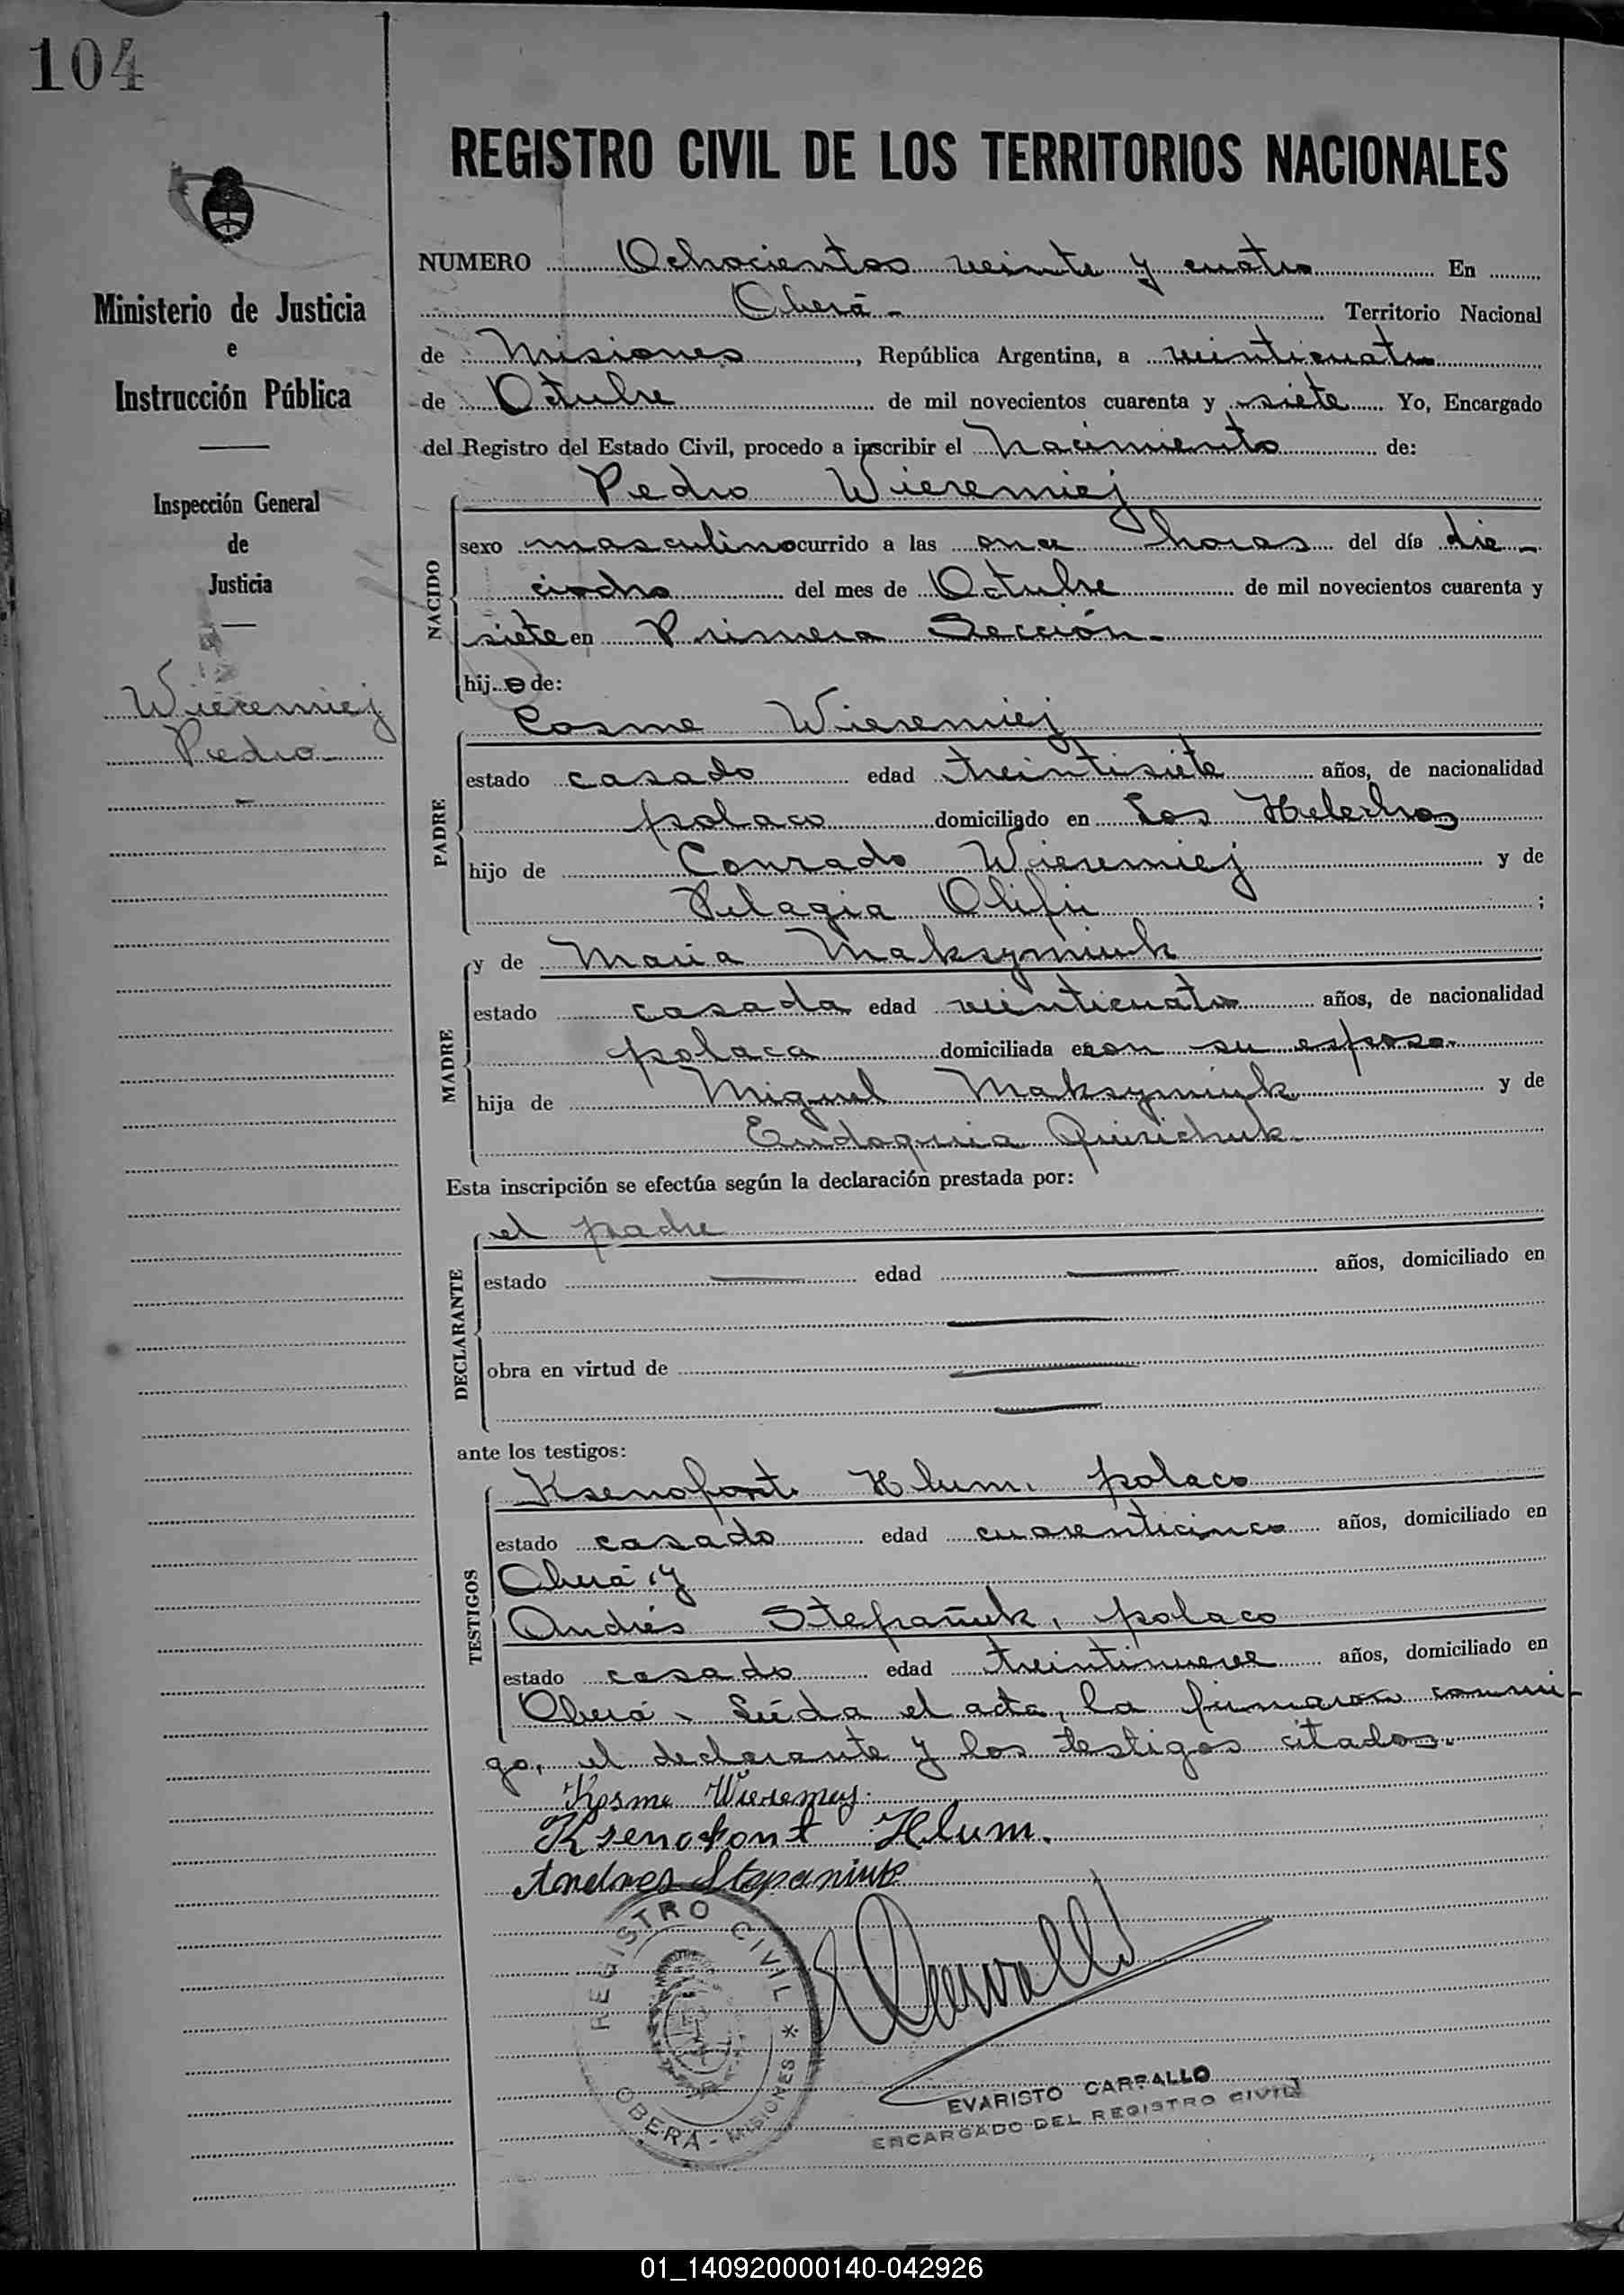 104
REGISTRO CIVIL DE LOS TERRITORIOS NACIONALES
Ministerio de Justicia
e
Instrucción Pública
Inspección General
de
Justicia
Wieremiej
Pedro
NUMERO Ochocientos veinte y cuatro En
Oberá - Territorio Nacional
de Misiones, República Argentina, a veinticuatro
de Octubre de mil novecientos cuarenta y siete Yo, Encargado
del Registro del Estado Civil, procedo a inscribir el Nacimiento de:
Pedro Wieremiej
NACIDO
sexo masculino ocurrido a las once horas del día die-
ciocho del mes de Octubre de mil novecientos cuarenta y
siete en Primera Sección.
hijo de:
Cosme Wieremiej
PADRE
estado casado edad treintisiete años, de nacionalidad
polaco domiciliado en Los Helechos
hijo de Conrado Wieremiej y de
Pelagia Olifir;
y de Maria Maksymiuk
MADRE
estado casada edad veinticuatro años, de nacionalidad
polaca domiciliada con su esposo.
hija de Miguel Maksymiuk y de
Eudoquia
Esta inscripción se efectúa según la declaración prestada por:
el padre
DECLARANTE
estado edad años, domiciliado en
obra en virtud de
ante los testigos:
Ksenofont Hlum, polaco
TESTIGOS
estado casado edad cuarenticinco años, domiciliado en
Oberá, y
Andrés Stepañuk, polaco
estado casado edad treintinueve años, domiciliado en
Oberá. Leída el acta, la firmaron conmi-
go, el declarante y los testigos citados.
Kosme Wieremiej.
Ksenofont Hlum.
Andres Stepaniuk
REGISTRO CIVIL
OBERA - MISIONES *
EVARISTO CARBALLO
ENCARGADO DEL REGISTRO CIVIL
01_140920000140-042926